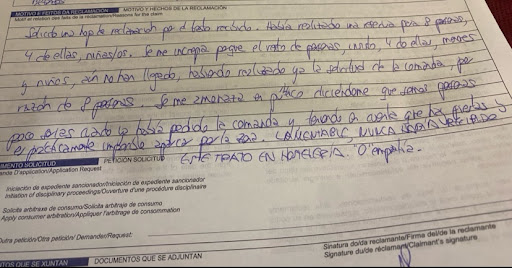 MOTIVO E FEITOS DA RECLAMACIÓN / MOTIVO Y HECHOS DE LA RECLAMACIÓN
Motif et relation des faits de la réclamation/Reasons for the claim
Solicito una hoja de reclamación por el trato recibido. Había realizado una reserva para 8 personas,
4 de ellas, niñas/os. Se me increpa porque el resto de personas, 4 de ellas, menores
y niños, aún no han llegado, habiendo realizado ya la solicitud de la comanda, por
razón de 8 personas. Se me amonesta en público diciéndome que somos personas
poco serias cuando ya había pedido la comanda y teniendo en cuenta que hay fiestas y
es prácticamente imposible aparcar por la zona. LAMENTABLE, NUNCA HABÍA RECIBIDO
ESTE TRATO EN HOSTELERÍA. "0" empatía.
DOCUMENTO SOLICITUD PETICIÓN SOLICITUD
Demanda D'application/Application Request
Iniciación de expediente sancionador/Iniciación de expediente sancionador
Initiation of disciplinary proceedings/Ouverture d'une procédure disciplinaire
Solicita arbitraxe de consumo/Solicita arbitraje de consumo
Apply consumer arbitration/Appliquer l'arbitrage de consommation
Outra petición/Otra petición/ Demander/Request:
Sinatura do/da reclamante/Firma del/de la reclamante
Signature du/de réclamant/Claimant's signature
DOCUMENTOS QUE SE XUNTAN DOCUMENTOS QUE SE ADJUNTAN